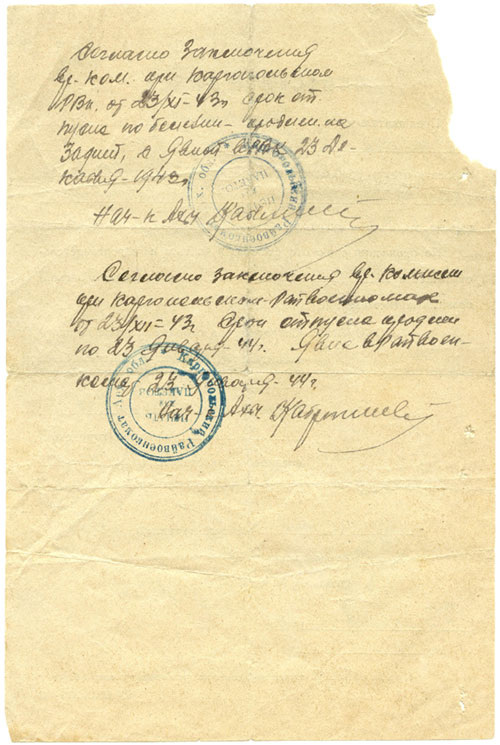 Согласно Заключения
вр. ком. при Каргопольском
РВк. от 23/XI-43г срок от
пуска по болезни - продлен на
30 дней, а явиться в РВК 23 де-
кабря - 1943г
Нач-к Ахч
Согласно заключения вр. комиссии
при Каргопольском Райвоенкомате
от 23/XII-43г срок отпуска продлен
по 23 Января-44г. Явка в Райвоен-
комат 23 января-44г
Нач- Ахч
Каргопольский Райвоенкомат Арх. обл.
Каргопольский Райвоенкомат Арх. обл.